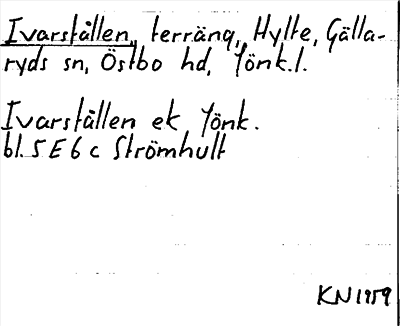 Ivarställen, terräng, Hylte, Gälla-
ryds sn, Östbo hd, Jönk.l.
Ivarställen ek Jönk.
bl. 5 E 6 c Strömhult
KN 1959